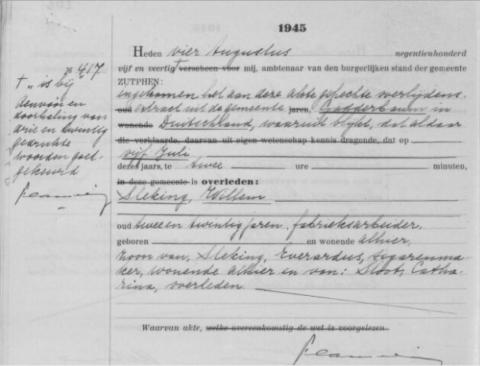 1945
Heden vier Augustus negentienhonderd
vijf en veertig verscheen voor mij, ambtenaar van den burgerlijken stand der gemeente
ZUTPHEN:
ingekomen het aan dezen akte gehechte overlijdens-
oud extract uit de gemeente jaren, Gadderbaum in
wonende Duitschland, waaruit blijkt, dat aldaar
die verklaarde, daarvan uit eigen wetenschap kennis dragende, dat op
vijf Juli
dezes jaars, te twee ure minuten,
in deze gemeente is overleden:
Sleking, Willem
oud twee en twintig jaren, fabrieksarbeider,
geboren en wonende alhier,
zoon van, Sleking, Everardus, sigarenma-
ker, wonende alhier en van: Sloot, Catha-
rina, overleden
Waarvan akte, welke overeenkomstig de wet is voorgelezen.
No 417
+ „is bij
doorhaling van
drie en twintig
gedrukte
woorden goed-
gekeurd